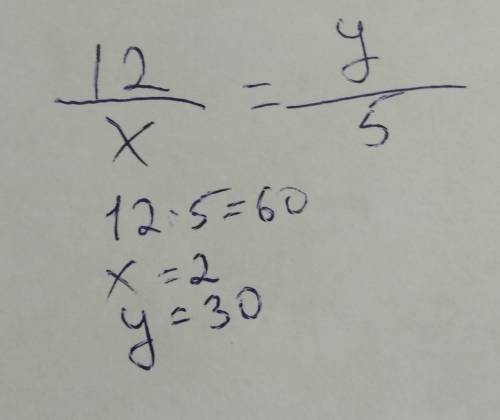 12/x = y/5
12·5=60
x=2
y=30